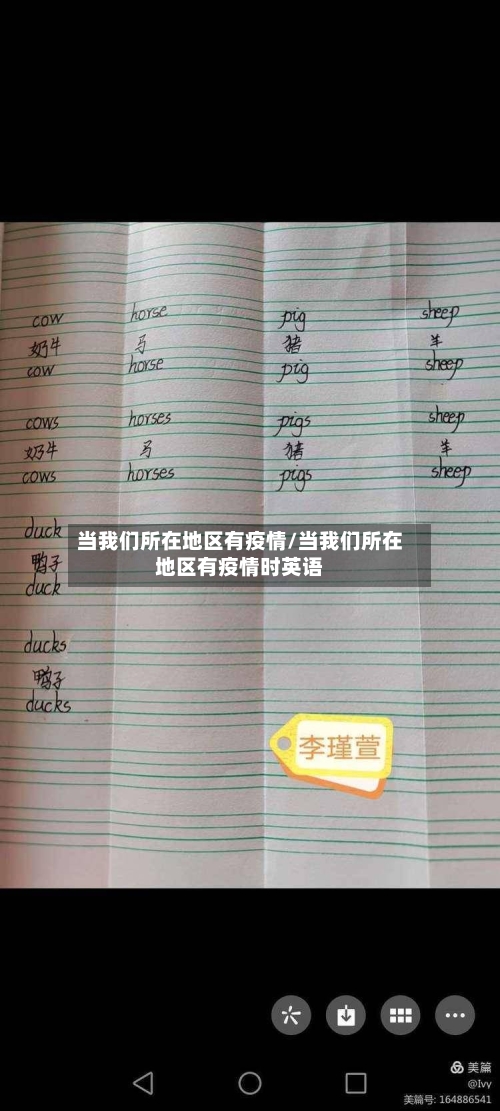 cow horse pig sheep
奶牛 马 猪 羊
cow horse pig sheep
cows horses pigs sheep
奶牛 马 猪 羊
cows horses pigs sheep
duck
当我们所在地区有疫情/当我们所在
地区有疫情时英语
鸭子
duck
ducks
鸭子
ducks
李瑾萱
美篇
@Ivy
美篇号: 164886541